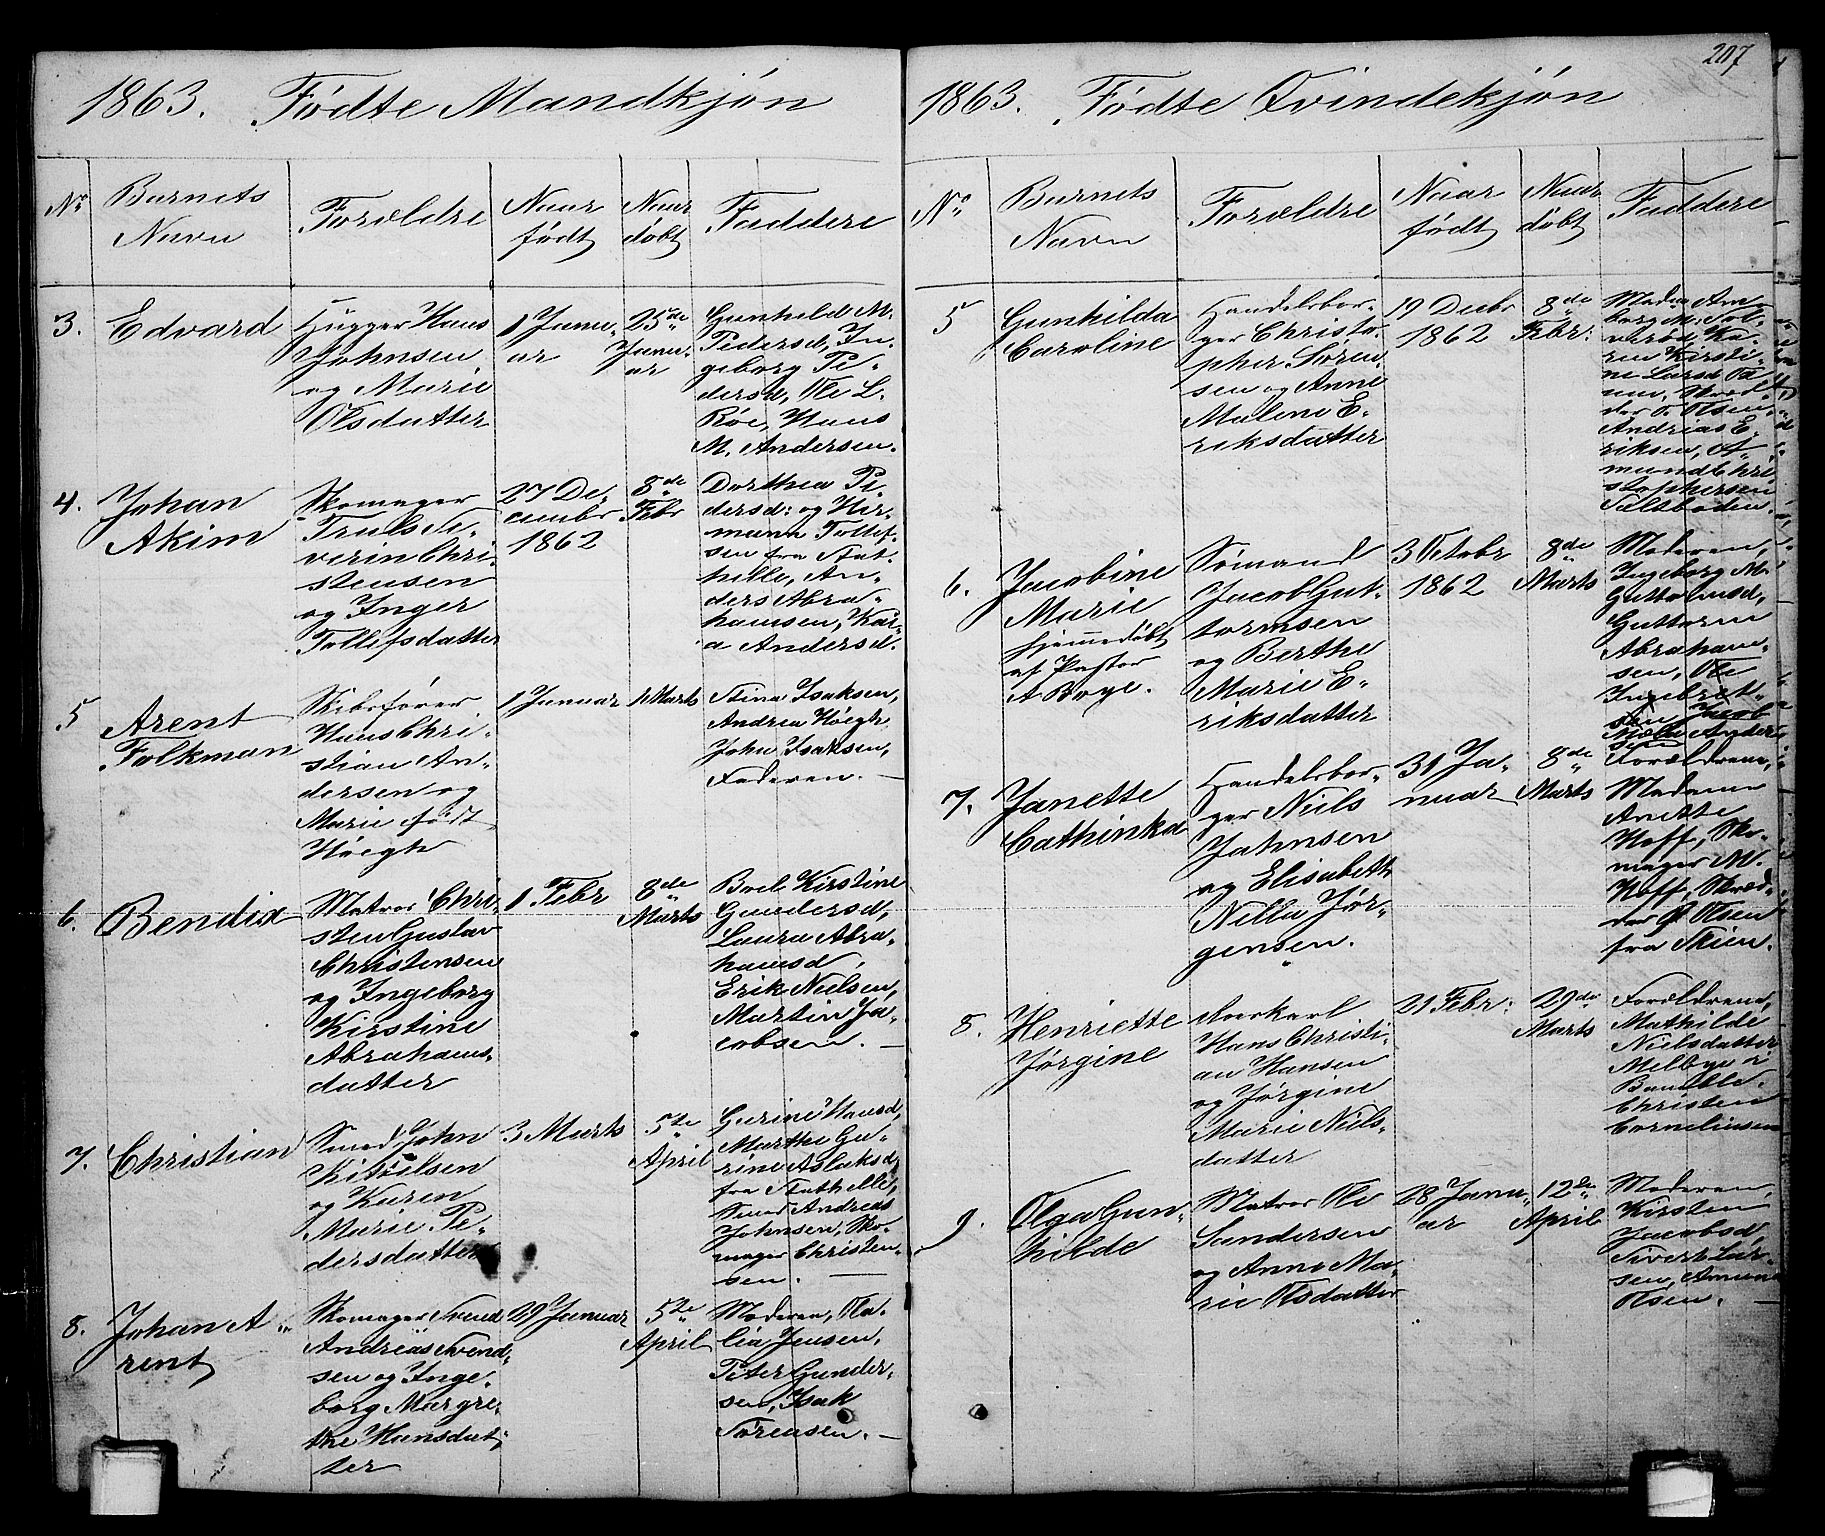 207
1863. Fødte Mandkjøn
No
Barnets
Navn
Forældre
Naar
født
Naar
døbt
Faddere
3.
Edvard
Hugger Hans
Johnsen
og Marie
Olsdatter
1 Janu-
ar
25de
Janu-
ar
Gunhild M.
Pedersd, In-
geborg Pe-
dersd, Ole L.
Röe, Hans
M. Andersen.
4.
Johan
Akim
Skomager
Truls Se-
verin Chri-
stensen
og Inger
Tollefsdatter
27 De-
cembr
1862
8de
Febr
Dorthea Pe-
dersd: og Her-
mann Tollef-
sen fra Stat-
helle, An-
ders Abra-
hamsen, Kar-
a Andersd.
5
Arent
Folkman
Skibsfører
Hans Chri-
stian An-
dersen og
Marie født
Høegh
1 Januar
1 Marts
Stina Isaksen,
Andrea Høegh,
John Isaksen,
Faderen. —
6.
Bendix
Matros Chri-
sten Gustav
Christensen
og Ingeborg
Kirstine
Abrahams-
datter
1 Febr
8de
Marts
Boel Kirstine
Gundersd,
Laura Abra-
hamsd,
Erik Nielsen,
Martin Ja-
cobsen. —
7.
Christian
Smed John
Kittilsen
og Karen
Marie Pe-
dersdatter
3 Marts
5te
April
Gurine Hansd,
Marthe Gu-
rine Aslaksd
fra Stathelle,
Smed Andreas
Johnsen, Sko-
mager Christen-
sen. —
8.
Johan A-
rent
Skomager Svend
Andreas Svend-
sen og Inge-
borg Margre-
the Hansdat-
ter
29 Januar
5te
April
Moderen, Ma-
lia Jensen,
Peter Gunder-
sen, Isak
Sørensen. —
1863. Fødte Qvindekjøn
No
Barnets
Navn
Forældre
Naar
født
Naar
døbt
Faddere
5
Gunhilda
Caroline
Handelsbor-
ger Christo-
pher Søren-
sen og Anne
Malene E-
riksdatter
19 Decbr
1862
8de
Febr:
Andrias E-
riksen,
mund Chri-
stophersen
6.
Jacobine
Marie
hjemmedøbt
af Pastor
A Boye.
Sømand
Jacob Gut-
tormsen
og Berthe
Marie E-
riksdatter
3 Octobr
1862
8de
Marts
Moderen,
Ingeborg M.
Guttormsd,
Guttorm
Abraham-
sen, Ole
Ingebret-
sen Jacob
7.
Janette
Cathinka
Handelsbor-
ger Niels
Jahnsen
og Elisabeth
Nilla Jør-
gensen.
31 Ja-
nuar
8de
Marts
Forældrene,
Madame
Anette
Hoff, Sko-
mager M.
Hoff, Skræd-
der P Olsen
fra Skien.
8.
Henriette
Jørgine
Hans Christi-
an Hansen
og Jørgine
Marie Niels-
datter
21 Febr:
29de
Marts
Forældrene,
Mathilde
Nielsdatter
Melbye i
Bamble.
Christen
Corneliusen
9.
Olga Gun-
hilde
Matros Ole
Sandersen
og Anne Ma-
rie Olsdatter
28 Janu-
ar
12te
April
Moderen,
Kirsten
Jacobsd,
Sivert Lar-
sen, Amund
Olsen. —